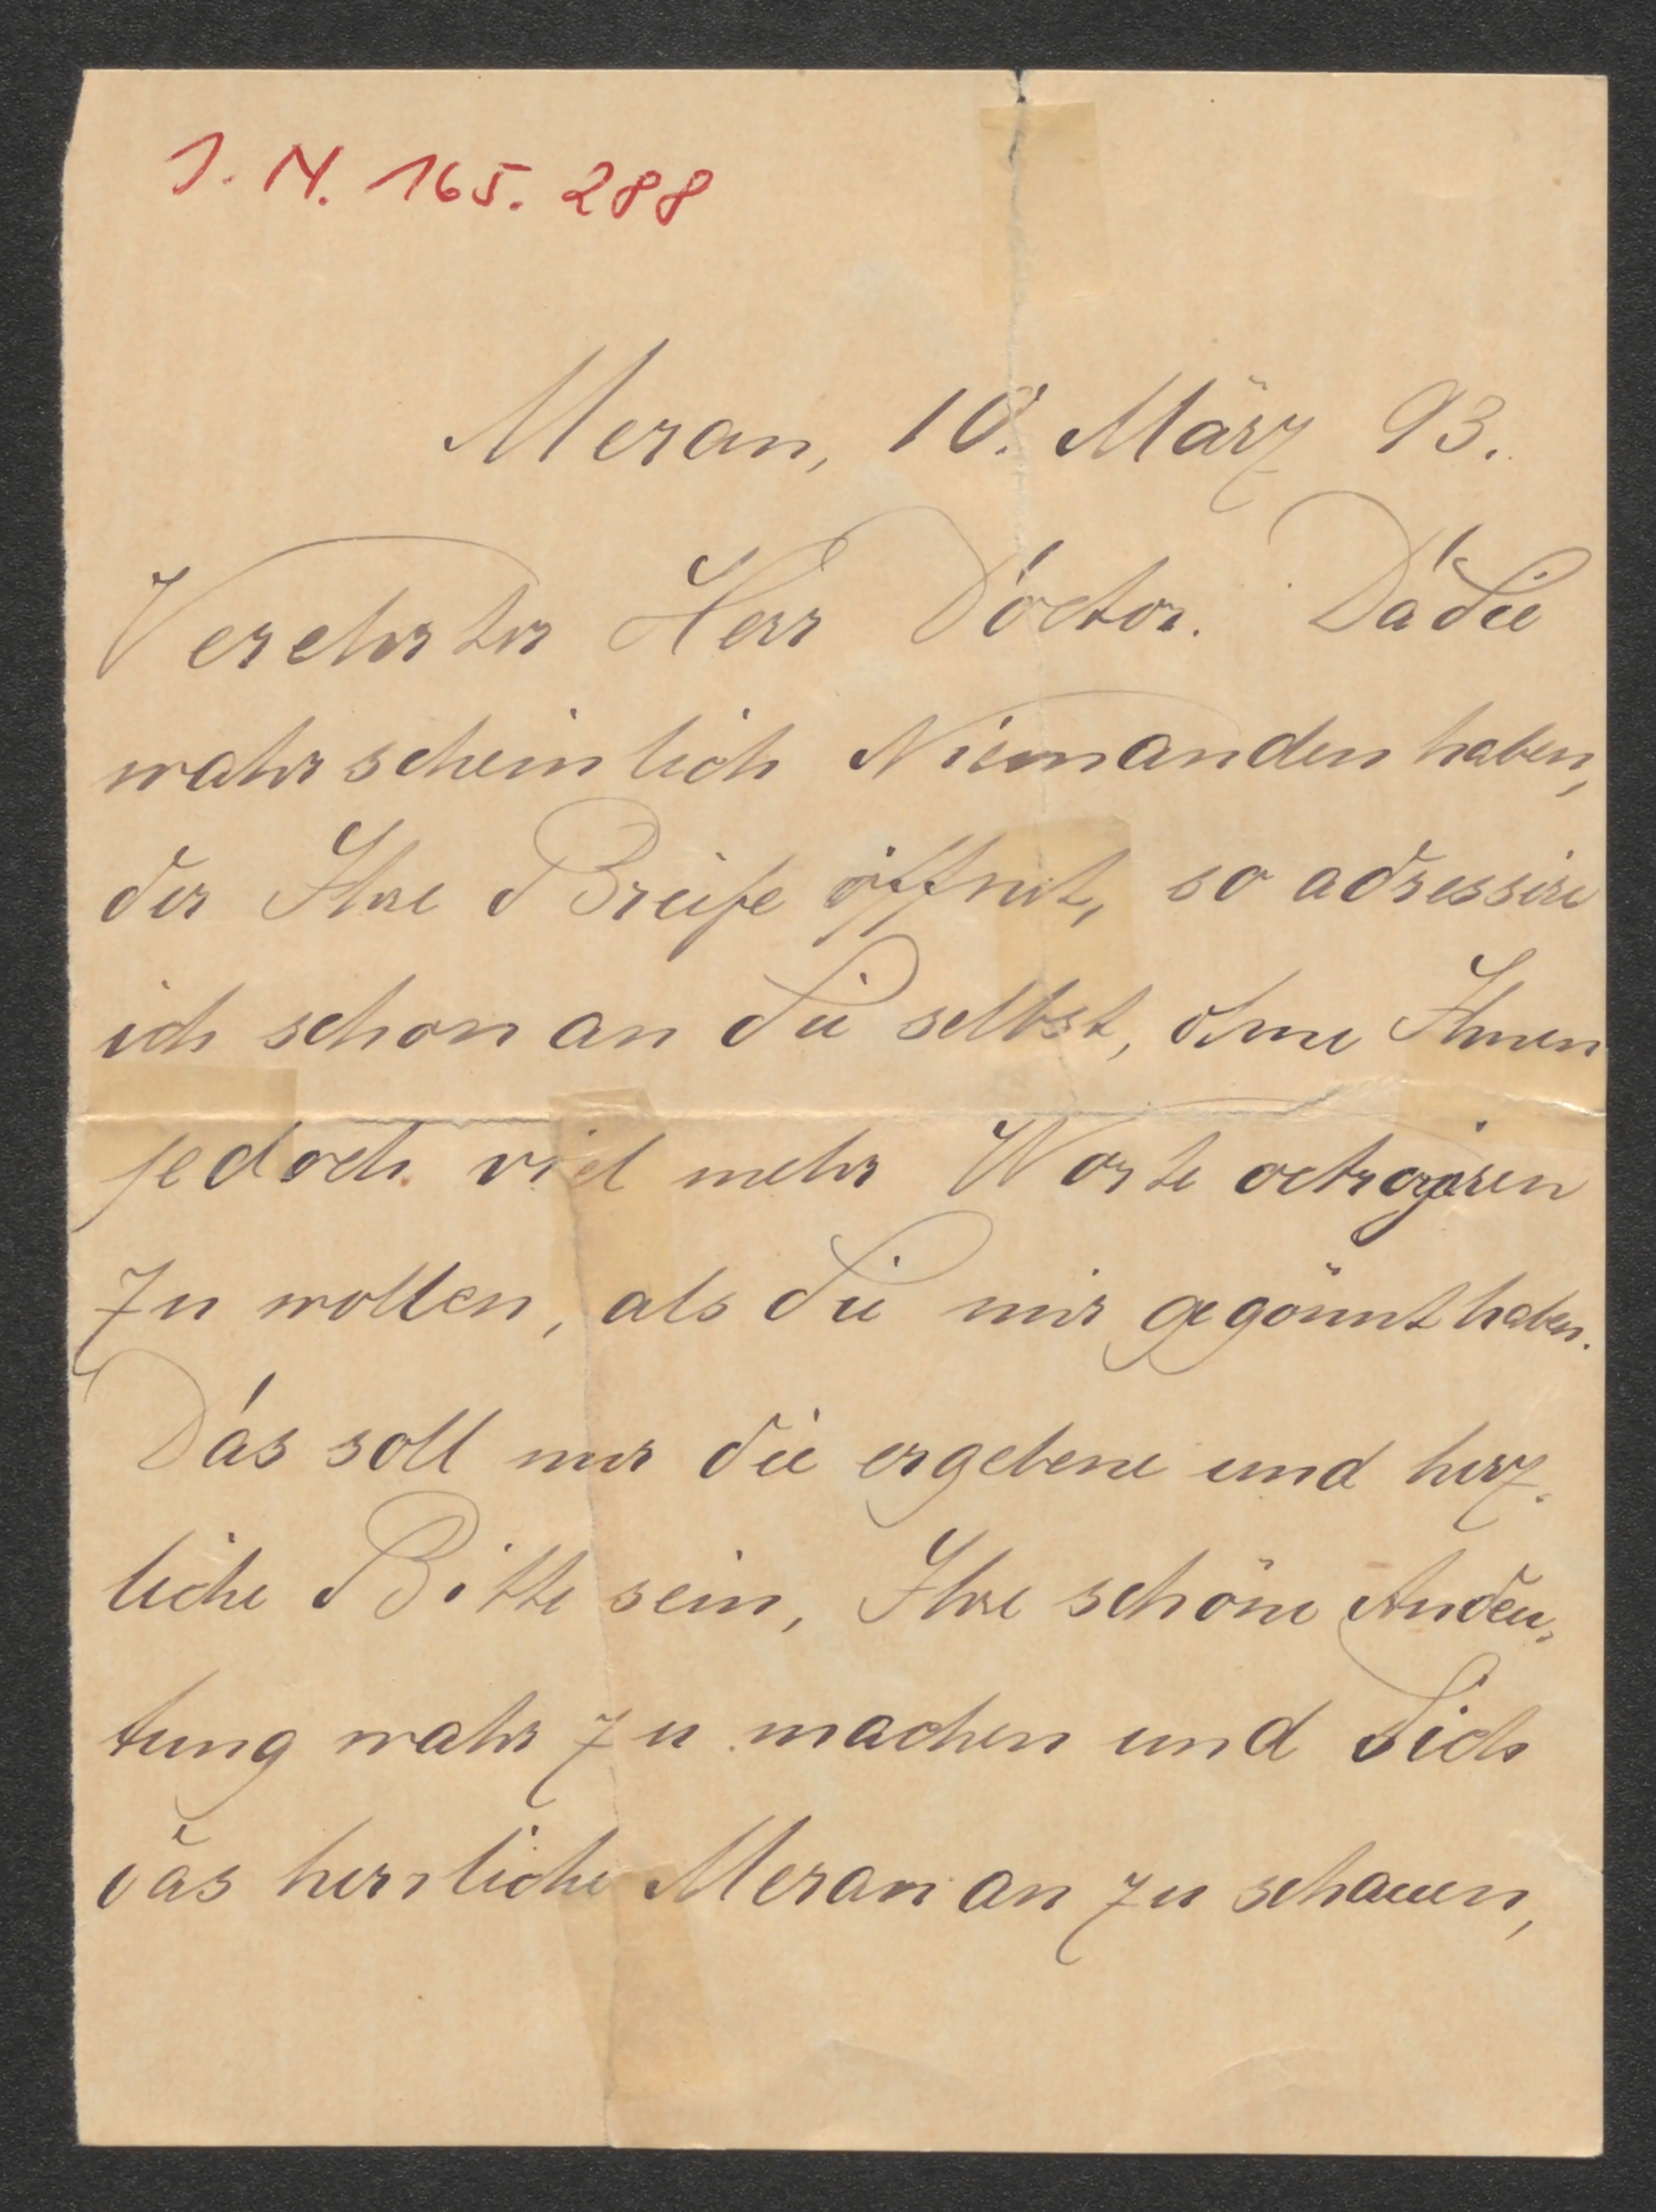 J. N. 165.288
Meran, 10. März 93.
Verehrter Herr Doctor. Da Sie
wahrscheinlich Niemanden haben,
der Ihre Breife öffnet, so adressire
ich schon an Sie selbst, ohne Ihnen
jedoch viel mehr Worte octroyiren
zu wollen, als Sie mir gegönnt haben.
Das soll nur die ergebene und herz-
liche Bitte sein, Ihre schöne Andeu-
tung wahr zu machen und Sich
das herrliche Meran an zu schauen,